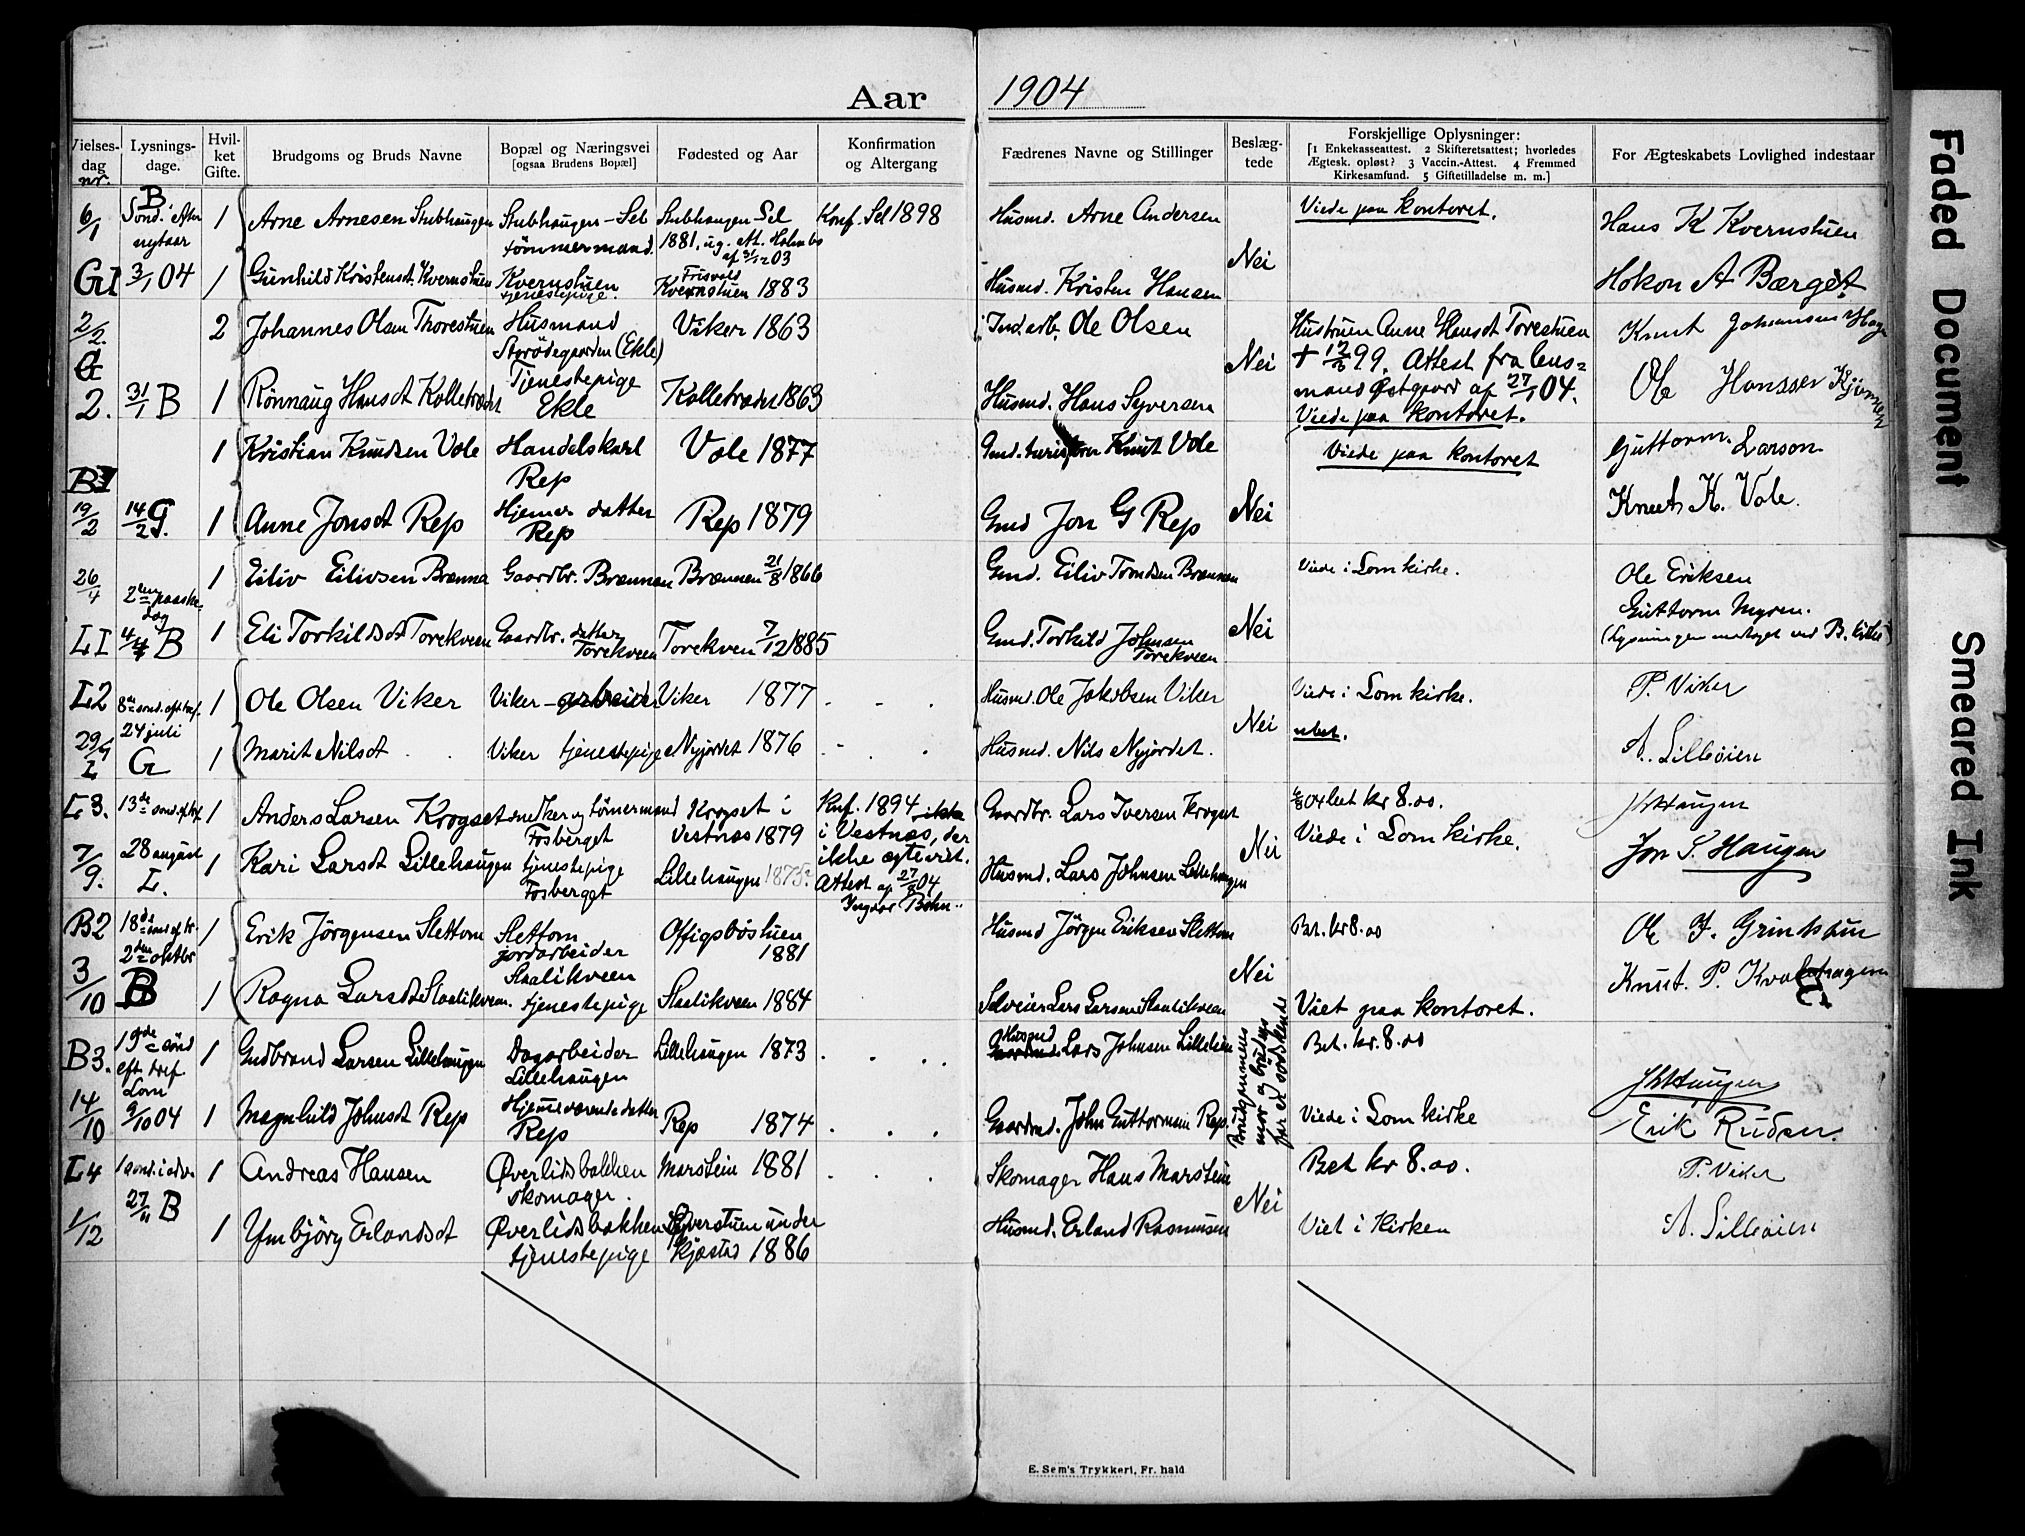 Aar 1904
Vielses-dag nr.
Lysnings-dage.
Hvil-ket Gifte.
Brudgoms og Bruds Navne
Bopæl og Næringsvei
[ogsaa Brudens Bopæl]
Fødested og Aar
Konfirmation og Altergang
Fædrenes Navne og Stillinger
Beslæg-tede
Forskjellige Oplysninger:
[1 Enkekasseattest. 2 Skifteretsattest; hvorledes
Ægtesk. opløst? 3 Vaccin.-Attest. 4 Fremmed
Kirkesamfund. 5 Giftetilladelse m. m.]
For Ægteskabets Lovlighed indestaar
6/1 B Sønd. efter nytaar 1 Arne Arnesen Stubhaugen Stubhaugen - Sel tømmermand. Stubhaugen Sel 1881, ug. att. 31/12 03 Konf. Sel 1898 Husmd. Arne Andersen Viede paa kontoret. Hans K Kvernstuen
G1 3/1 04 1 Gunhild Kristensdt. Kvernstuen Kvernstuen tjenestepige. Kvernstuen 1883 Husmd. Kristen Hansen Nei Hokon A Bærget
2/2 G 2 Johannes Olsen Thorestuen Husmand Storödegaarden (Ekle) Viker 1863 Ind.arb. Ole Olsen Hustruen Anne Hansdt Torestuen Knut Johansen
2. 31/1 B 1 Rönnaug Hansdt Kolletrædet Tjenestepige Ekle Kolletrædet 1863 Husmd. Hans Syversen Nei 99. Attest fra lens=
mand Østgaard af 27/1 04.
Viede paa kontoret. Ole Hanssen
1 Kristian Knudsen Vole Handelskarl Rep Vole 1877 Knut Vole Viede paa kontoret Guttorm Larson
B1 19/2 14/2 G. 1 Anne Jonsdt Rep Hjemev datter Rep Rep 1879 Gmd Jon G Rep Nei Knut K. Vole.
26/4 1 Eiliv Eilivsen Brænna Gaardbr. Brænnen Brænnen 21/8 1866 Gmd. Eiliv Trondsen Brænnen Viede i Lom kirke. Ole Eriksen
L1 2den paaske-dag 4/4 B 1 Eli Torkildsdt Torekveen Gaardbr. datter Torekveen Torekven 7/12 1885 Gmd. Torkild Johnsen Torekveen Nei Guttorm Myren.
(Lysningen mottaget ved B. kirke)
L2 8de sönd. eft tref. 1 Ole Olsen Viker Viker - arbeider Viker 1877 Husmd. Ole Jakobsen Viker Viede i Lom kirke. P. Viker
29/7 24 juli G 1 Marit Nilsdt Viker tjenestepige Nyjordet 1876 Husmd. Nils Nyjordet. Nei ubet. A. Lilleöien
L3. 13de sönd. ef tref 1 Anders Larsen Krogset snedker og tömermand Fosberget Krogset i Vestnæs 1879 Knf. 1894 ikke
i Vestnæs, der
ikke ægteviet.
Attest af 27/8 04
Yngvar Böhn Gaardbr. Lars Iversen Krogset bet kr 8.00. Haugen
7/9. 28 august L. 1 Kari Larsdt Lillehaugen tjenestepige Fosberget Lillehaugen 1875? Husmd. Lars Johnsen Lillehaugen Nei Viede i Lom kirke. Jon S. Haugen
B2 18de sönd ef tr. 1 Erik Jörgensen Slettom Slettom jordarbeider Offigsböstuen 1881 Husmd Jörgen Eriksen Slettom Bet. kr 8.00
3/10 2den oktbr B 1 Ragna Larsdt Staalikveen. Staalikveen tjenestepige Staalikveen 1884 Selveier Lars Larsen Staalikveen Nei Viet paa kontoret. Knut. P. Kvalehagen
B3. 19de sönd eft tref 1 Gudbrand Larsen Lillehaugen Dagarbeider Lillehaugen Lillehaugen 1873 Husmd Lars Johnsen Lilleheim Brudgommens
mor og brudens
far er södskende Bet. kr. 8.00 Haugen
14/10 Lom 9/10 04 1 Magnhild Johnsdt Rep Hjemmeværende datter Rep Rep 1874 Gaardmd. John Guttormsen Rep. Viede i Lom kirke Erik Ruden.
L4 1 sönd. i adv. 1 Andreas Hansen Øverlidsbakken skomager. Marstein 1881 Skomager Hans Marstein Bet kr 8.00. P. Viker
1/12 27/11 B 1 Ymbjörg Erlandsdt Øverlidsbakken tjenestepige under Kjæstad 1886 Husmd. Erland Rasmussen Nei Viet i Kirken A. Lilleöien
E. Sem's Trykkeri, Fr.hald
Faded Document
Smeared Ink